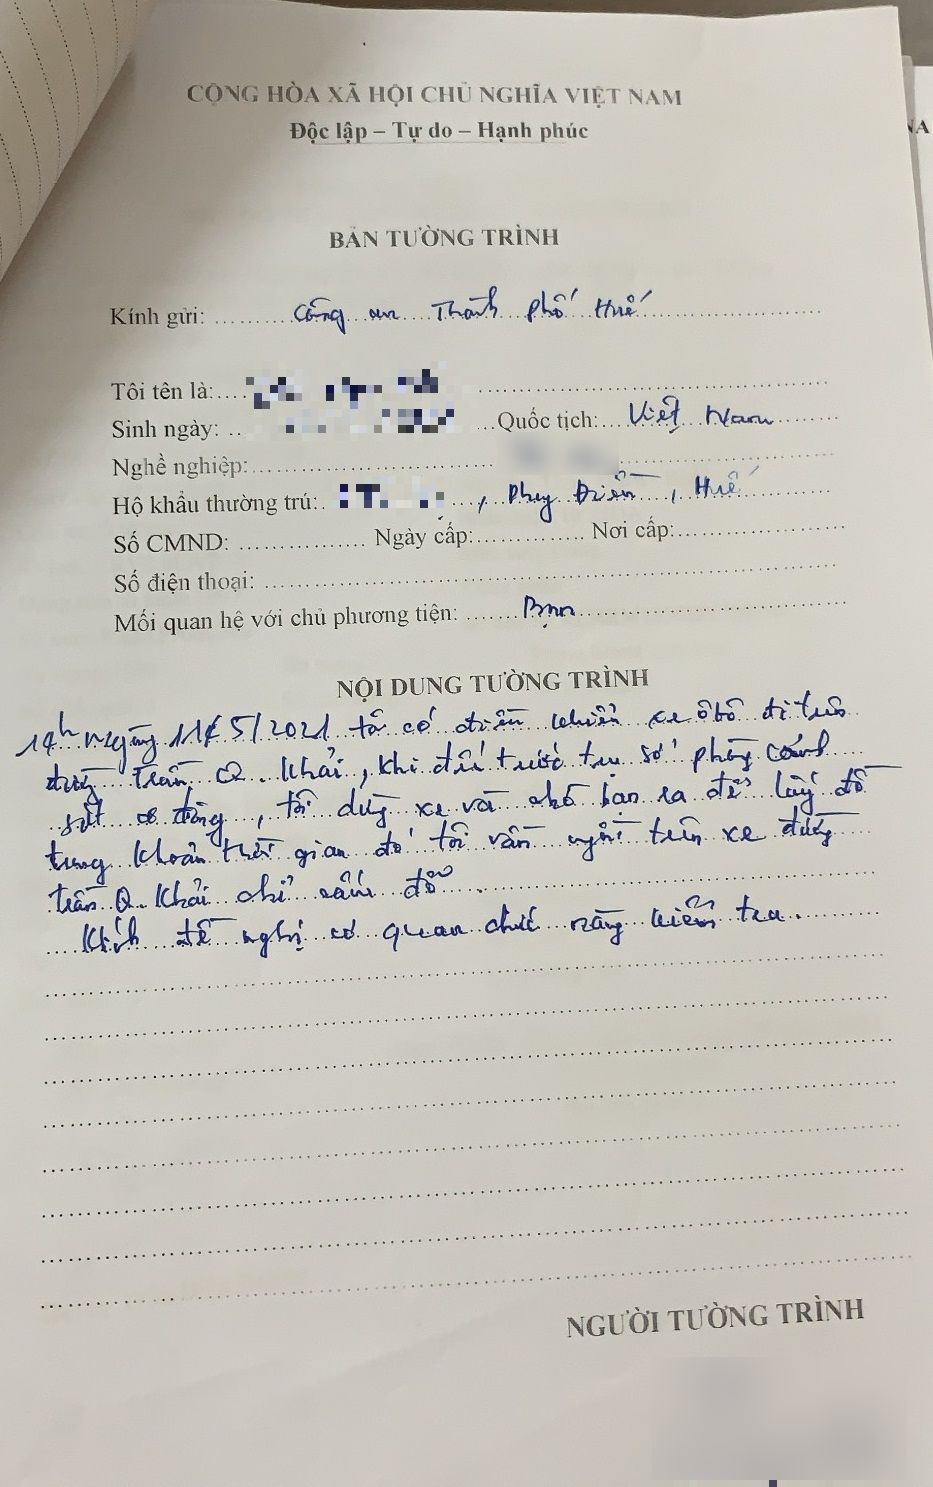 CỘNG HÒA XÃ HỘI CHỦ NGHĨA VIỆT NAM
Độc lập – Tự do – Hạnh phúc
BẢN TƯỜNG TRÌNH
Kính gửi: Công an Thành phố Huế
Tôi tên là:
Sinh ngày: Quốc tịch: Việt Nam
Nghề nghiệp:
Hộ khẩu thường trú: , Phong Điền, Huế
Số CMND: Ngày cấp: Nơi cấp:
Số điện thoại:
Mối quan hệ với chủ phương tiện: Bạn
NỘI DUNG TƯỜNG TRÌNH
14h Ngày 11/5/2021 tôi có điều khiển xe ôtô đi trên
đường Trần Q. Khải, khi đến trước trụ sở phòng cảnh
sát cơ động, tôi dừng xe và nhờ bạn ra để lấy đồ
trong khoản thời gian đó tôi vẫn ngồi trên xe đường
trần Q. Khải chỉ cấm đỗ.
Kính đề nghị cơ quan chức năng kiểm tra.
NGƯỜI TƯỜNG TRÌNH